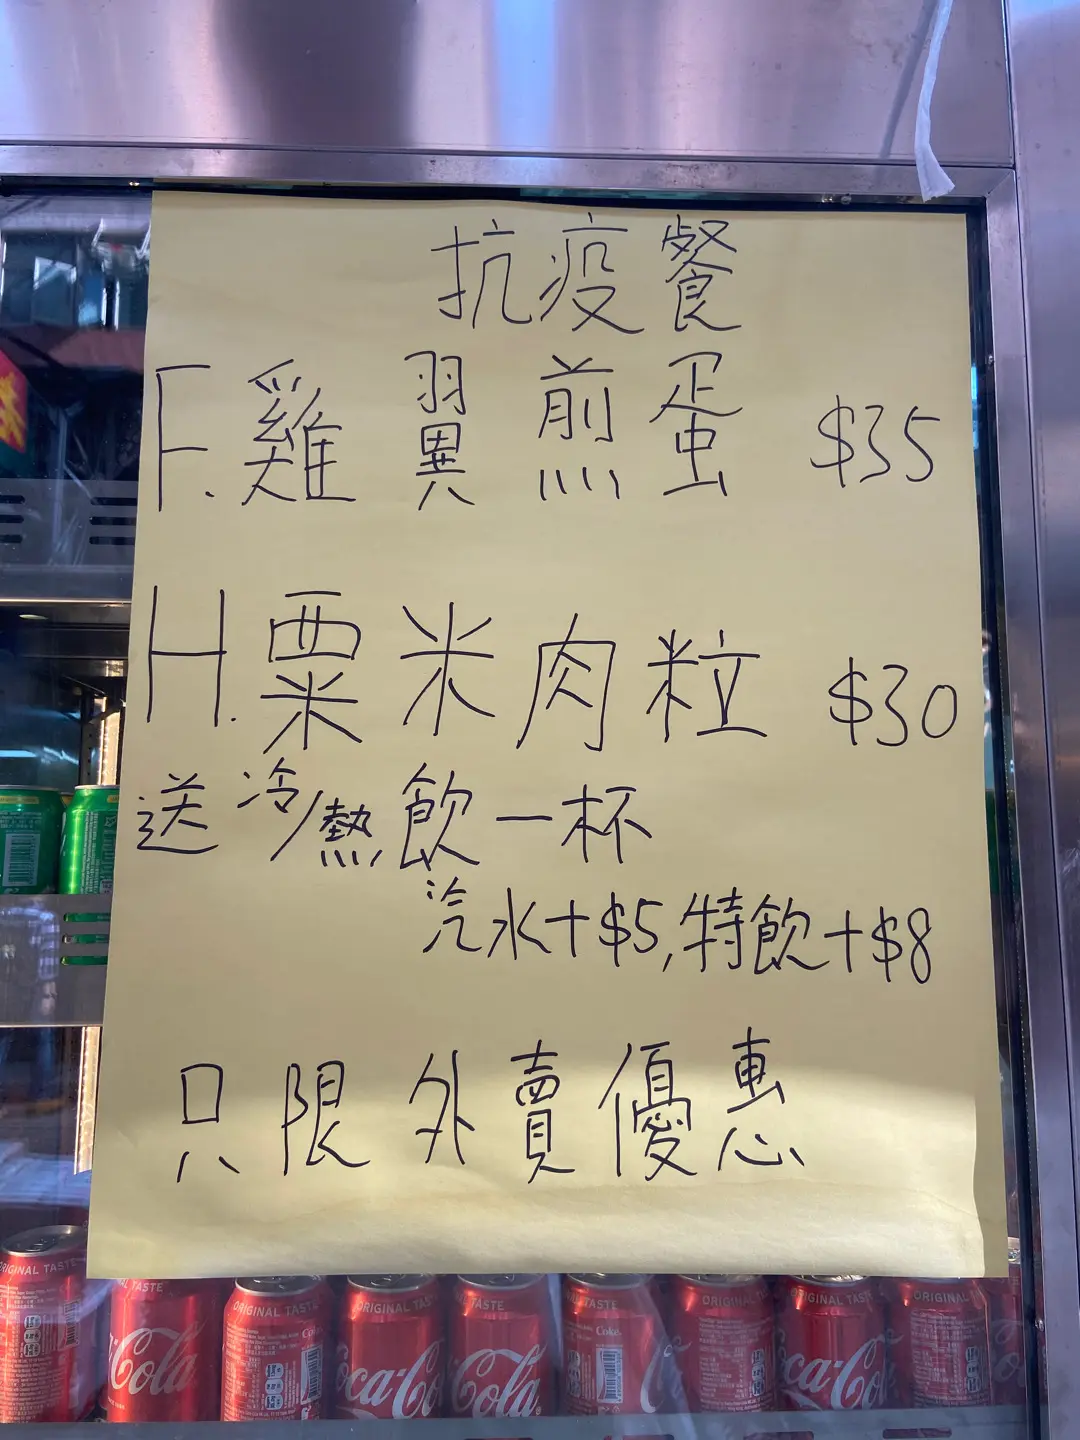 抗疫餐
F.雞翼煎蛋 $35
H.粟米肉粒 $30
送冷/熱飲一杯
汽水+$5,特飲+$8
只限外賣優惠
ORIGINAL TASTE
TASTE
ORIGINAL TASTE
ORIGINAL TASTE
TASTE
TASTE
ORIGINAL TASTE
ORIGINAL TASTE
ORIGINAL TASTE
Coke
Coke
Cola
Coca-Cola
Cola
Coca-Cola